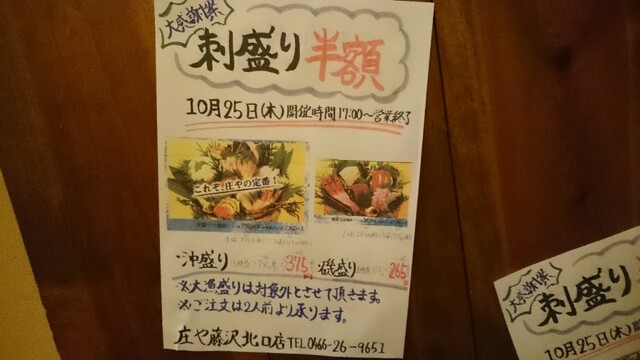 大感謝祭
刺盛り半額
10月25日(木)開催時間17:00～営業終了
これぞ!庄やの定番!
沖盛り 375 磯盛り 265
※大漁盛りは対象外とさせて頂きます。
※ご注文は2人前より承ります。
庄や藤沢北口店 TEL 0466-26-9651
大感謝祭
刺盛り
10月25日(木)